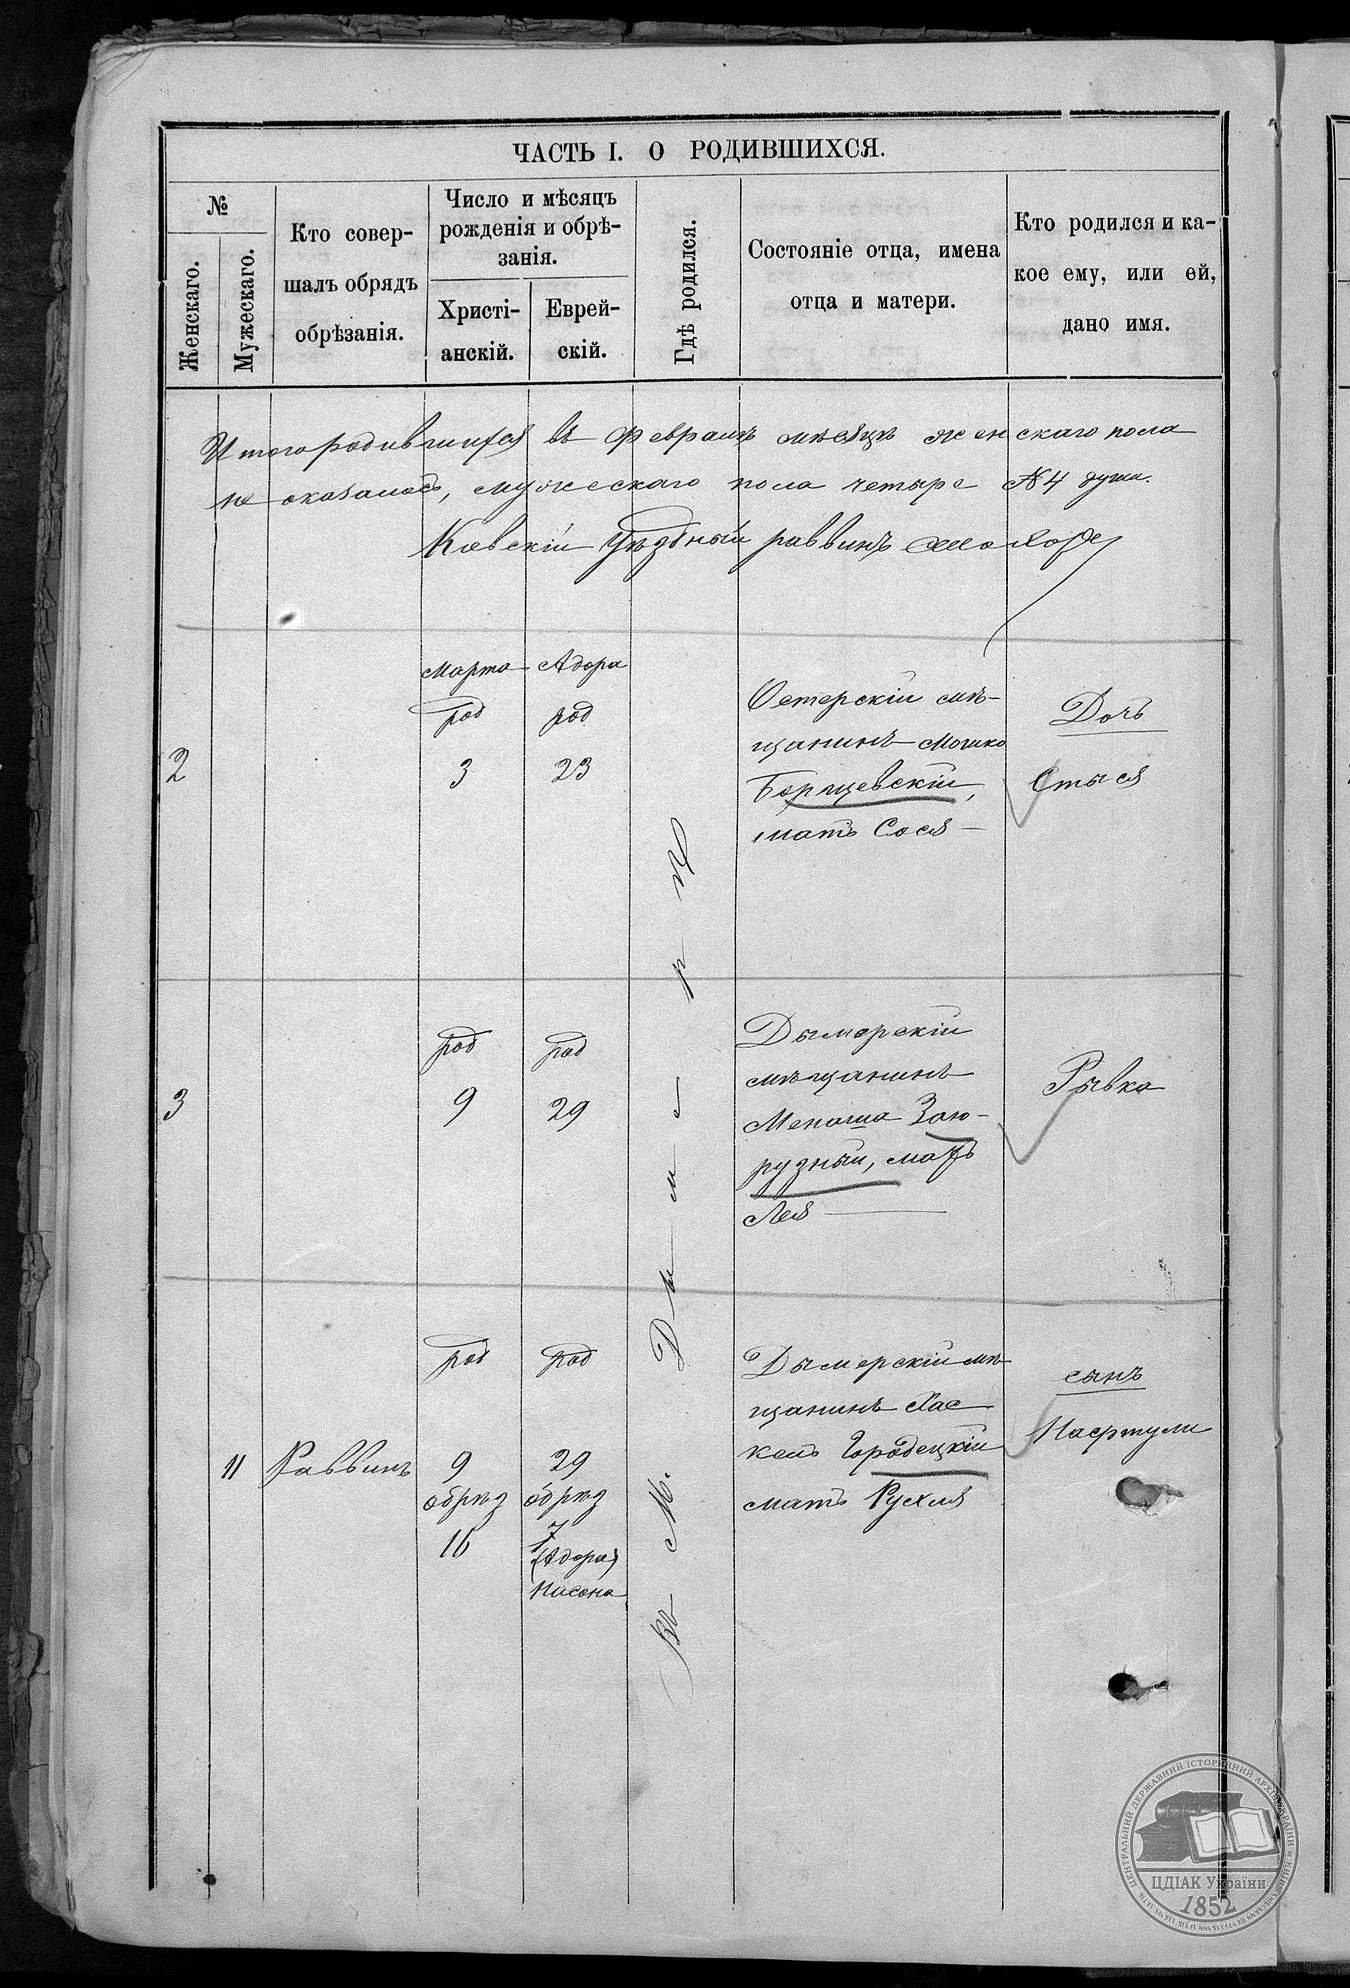 ЧАСТЬ I. О РОДИВШИХСЯ.
№
Женскаго.
Мужескаго.
Кто совер-
шалъ обрядъ
обрѣзанія.
Число и мѣсяцъ
рожденія и обрѣ-
занія.
Христі-
анскій.
Еврей-
скій.
Гдѣ родился.
Состояніе отца, имена
отца и матери.
Кто родился и ка-
кое ему, или ей,
дано имя.
Итого родившихся въ Февралѣ мѣсяцѣ женскаго пола
не оказалось, мужескаго пола четыре №4 душа.
Кіевскій Уѣздный раввинъ
Въ М. Дымерѣ
2
Марта
род
3
Адора
род
23
Остерскій мѣ-
щанинъ Мошко
Борщевскій,
мать Сося —
Дочь
Стыся
3
род
9
род
29
Дымерскій
мѣщанинъ
Менаша Заю-
рузный, мать
Лея —
Рывка
11
Раввинъ
род
9
обрѣз
16
род
29
обрѣз
7
(Адора)
Нисона
Дымерскій мѣ-
щанинъ Хас-
кель Городецкій
мать Рухля
сынъ
Нафтули
ЦЕНТРАЛЬНИЙ ДЕРЖАВНИЙ ІСТОРИЧНИЙ АРХІВ УКРАЇНИ м. КИЇВ
ЦДІАК України
1852